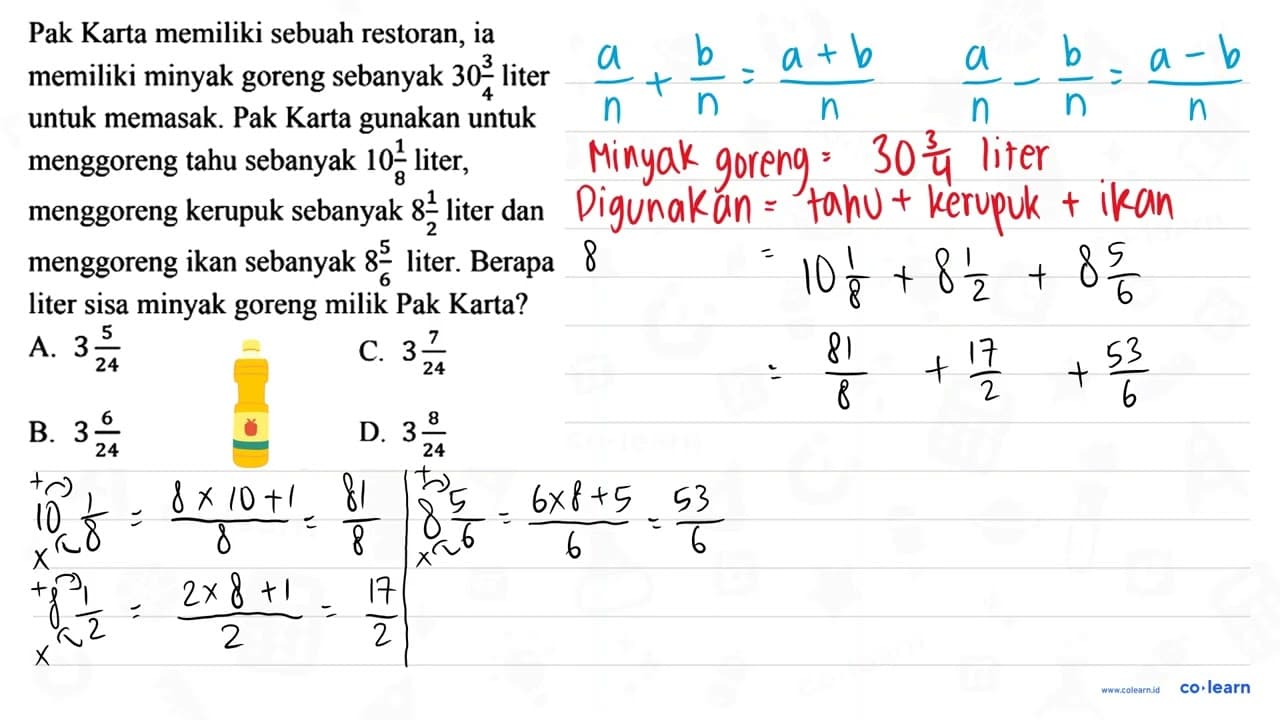 Pak Karta memiliki sebuah restoran, ia
memiliki minyak goreng sebanyak 30 3/4 liter
untuk memasak. Pak Karta gunakan untuk
menggoreng tahu sebanyak 10 1/8 liter,
menggoreng kerupuk sebanyak 8 1/2 liter dan
menggoreng ikan sebanyak 8 5/6 liter. Berapa
liter sisa minyak goreng milik Pak Karta?
A. 3 5/24
C. 3 7/24
B. 3 6/24
D. 3 8/24
a/n + b/n = a + b/n
a/n - b/n = a - b/n
Minyak goreng = 30 3/4 liter
Digunakan = tahu + kerupuk + ikan
8 = 10 1/8 + 8 1/2 + 8 5/6
= 81/8 + 17/2 + 53/6
+ 10 1/8 x = 8 x 10 + 1/8 = 81/8
+ 8 5/6 x = 6 x 8 + 5/6 = 53/6
+ 8 1/2 x = 2 x 8 + 1/2 = 17/2
www.colearn.id co·learn